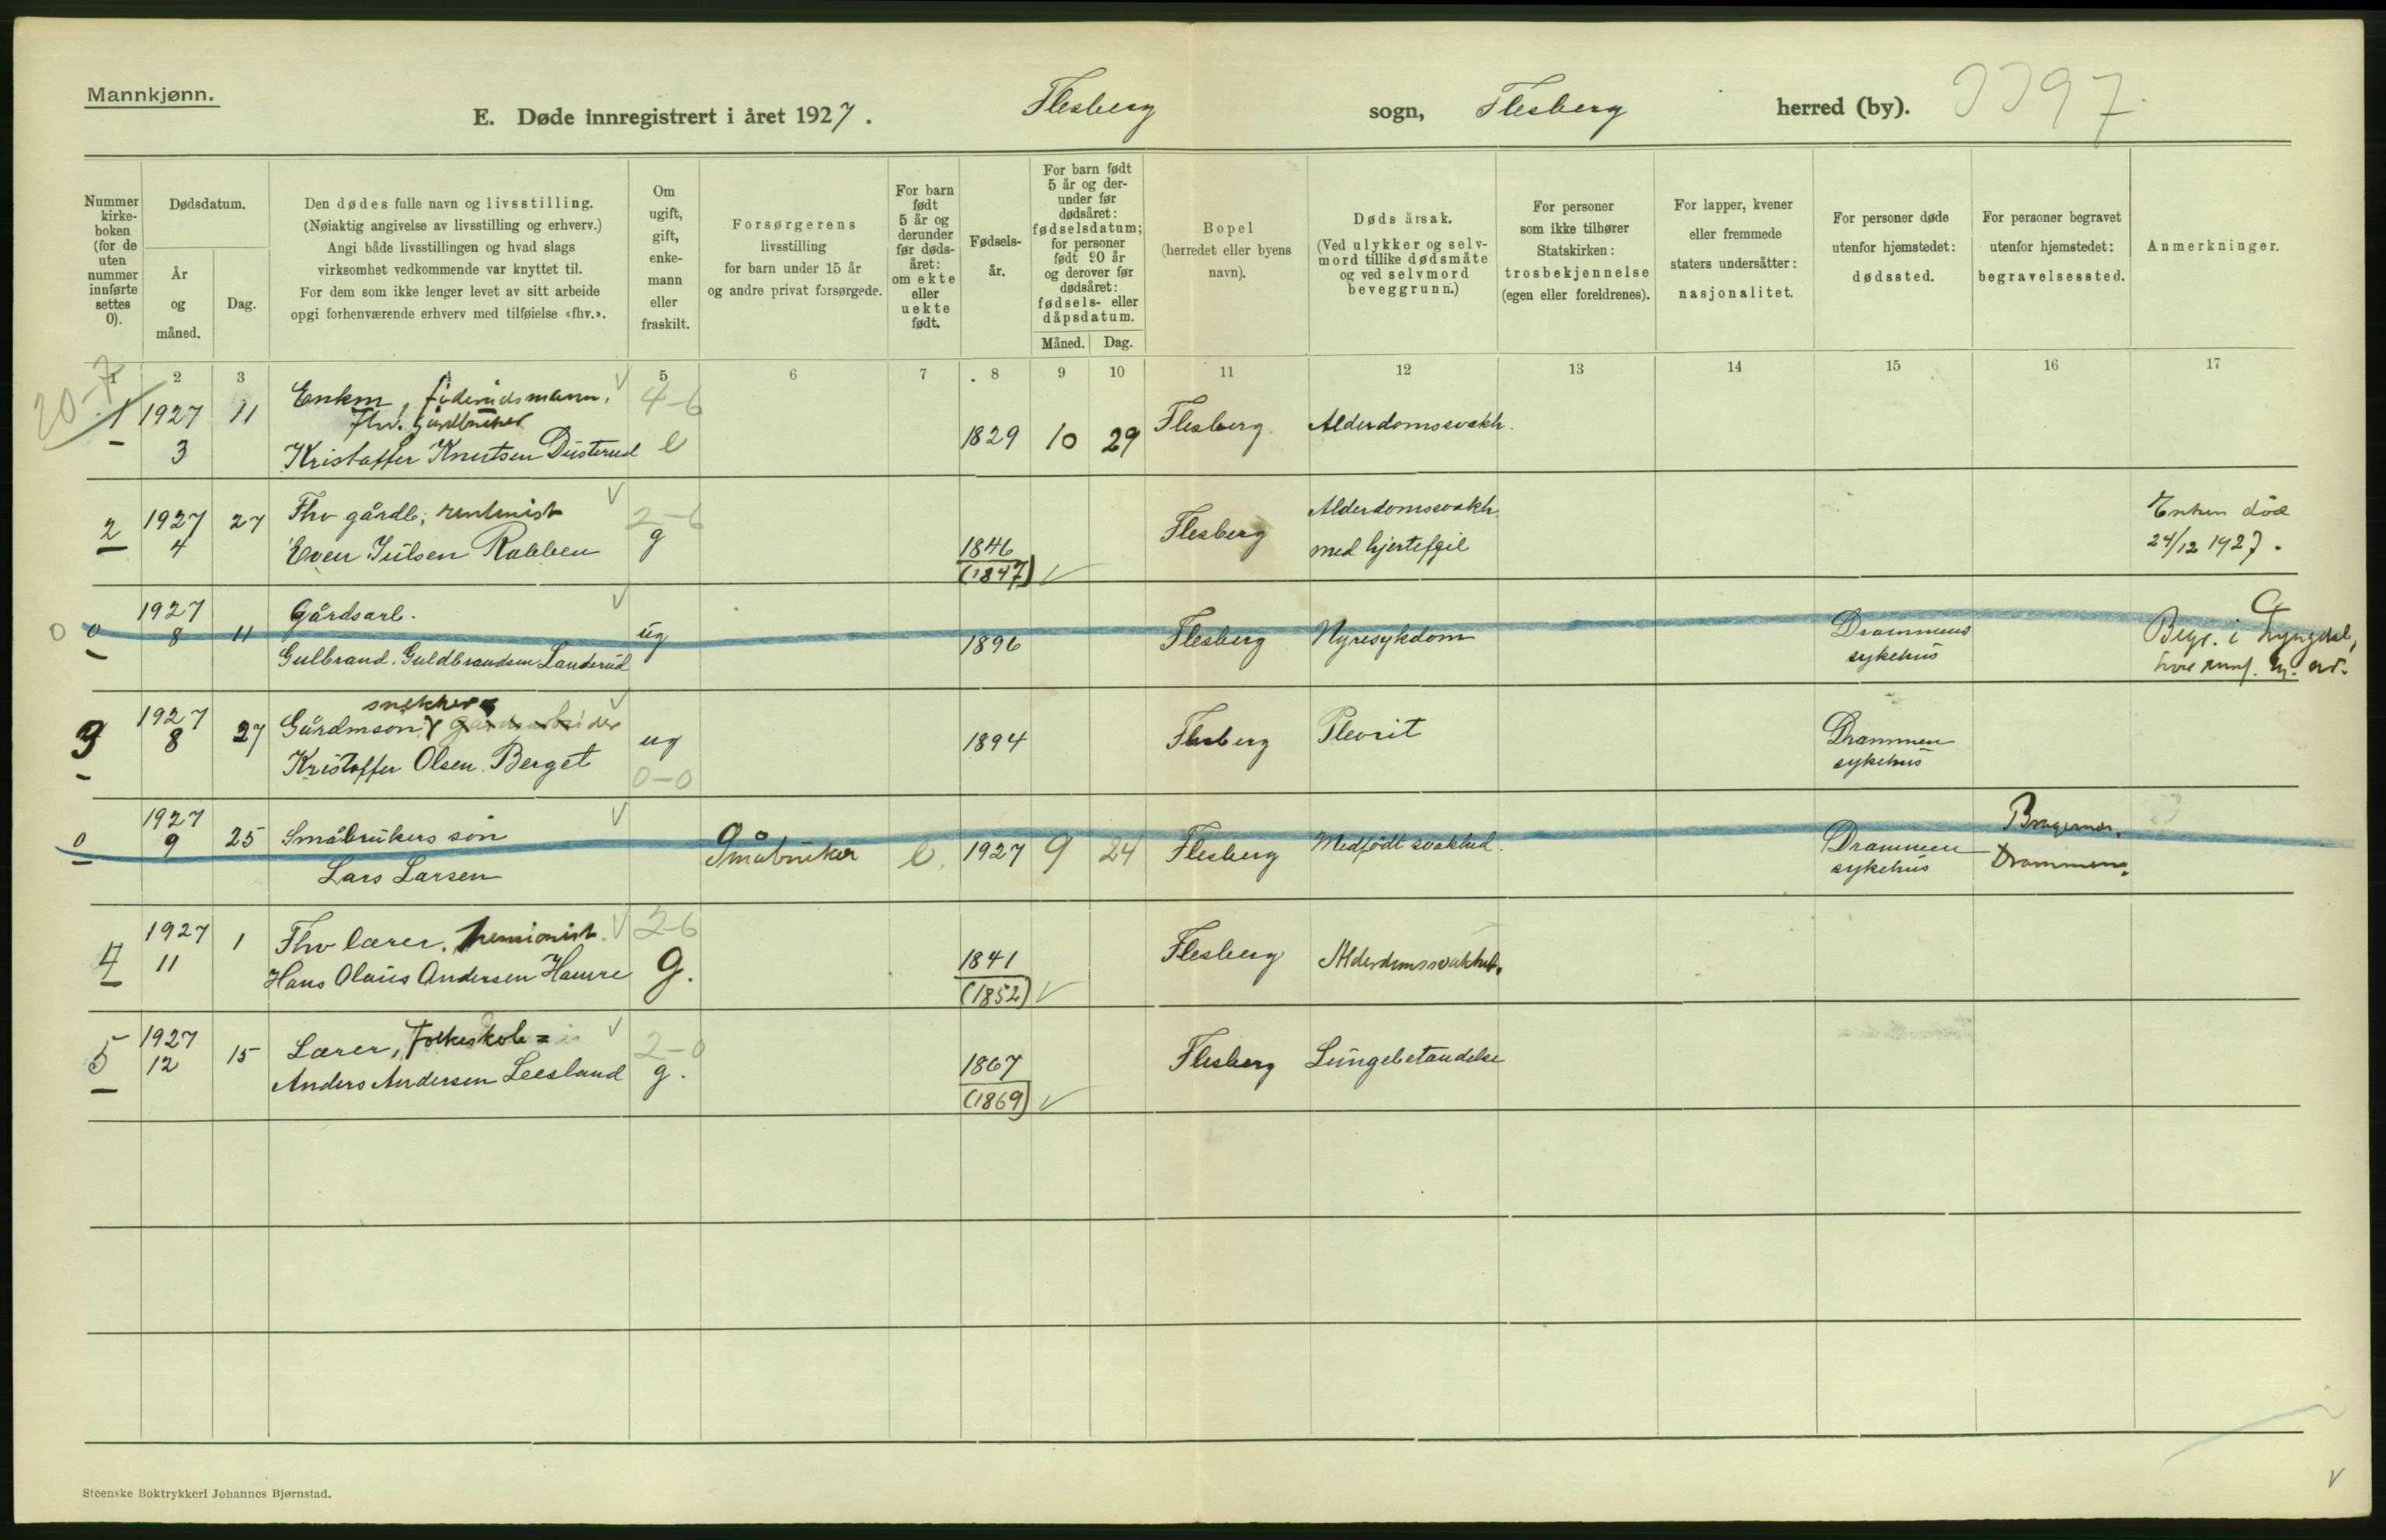 Mannkjønn.
E. Døde innregistrert i året 1927. Flesberg sogn, Flesberg herred (by).
Nummer kirke-boken (for de uten nummer innførte settes 0).
Dødsdatum.
År og måned.
Dag.
Den dødes fulle navn og livsstilling.
(Nøiaktig angivelse av livsstilling og erhverv.)
Angi både livsstillingen og hvad slags
virksomhet vedkommende var knyttet til.
For dem som ikke lenger levet av sitt arbeide
opgi forhenværende erhverv med tilføielse «fhv.».
Om ugift, gift, enke-mann eller fraskilt.
Forsørgerens
livsstilling
for barn under 15 år
og andre privat forsørgede.
For barn født 5 år og derunder før døds-året: om ekte eller uekte født.
Fødsels-år.
For barn født 5 år og der-under før dødsåret: fødselsdatum; for personer født 90 år og derover før dødsåret: fødsels- eller dåpsdatum.
Måned. Dag.
Bopel
(herredet eller byens
navn).
Døds årsak.
(Ved ulykker og selv-
mord tillike dødsmåte
og ved selvmord
beveggrunn.)
For personer
som ikke tilhører
Statskirken:
trosbekjennelse
(egen eller foreldrenes).
For lapper, kvener
eller fremmede
staters undersåtter:
nasjonalitet.
For personer døde
utenfor hjemstedet:
dødssted.
For personer begravet
utenfor hjemstedet:
begravelsessted.
Anmerkninger.
1 2 3 4 5 6 7 8 9 10 11 12 13 14 15 16 17
20-7
1 1927 11 Enkm, føderådsmann. 4-6
Fhv. Gårdbruker
3 Kristoffer Knutsen Dusterud e 1829 10 29 Flesberg Alderdomssvakh.
2 1927 27 Fhv gårdb; rentenist 2-6 Alderdomssvakh. Enken död
4 Even Julsen Rabben g 1846 Flesberg med hjertefeil 24/12 1927.
(1847)
0 0 1927 Gårdsarb.
8 11 Gulbrand Guldbrandsen Landerud ug 1896 Flesberg Nyresykdom Drammens sykehus Begr. i Lyngdal,
3 1927 snekker
8 27 Gårdmsön, gårdsarbeider ug 1894 Flesberg Plevrit Drammen sykehus
Kristoffer Olsen Berget 0-0
0 1927
9 25 Småbrukers sön Småbruker e. 1927 9 24 Flesberg Medfødt svakhed. Drammen sykehus Bragernes. Drammen.
Lars Larsen
4 1927 1 Fhv lærer. Pensionist. 2-6
11 Hans Olaus Andersen Hamre g. 1841 Flesberg Alderdomssvakhet.
(1852)
5 1927 15 Lærer, Folkeskole= 2-0
12 Anders Andersen Leesland g. 1867 Flesberg Lungebetændelse
(1869)
Steenske Boktrykkeri Johannes Bjørnstad.